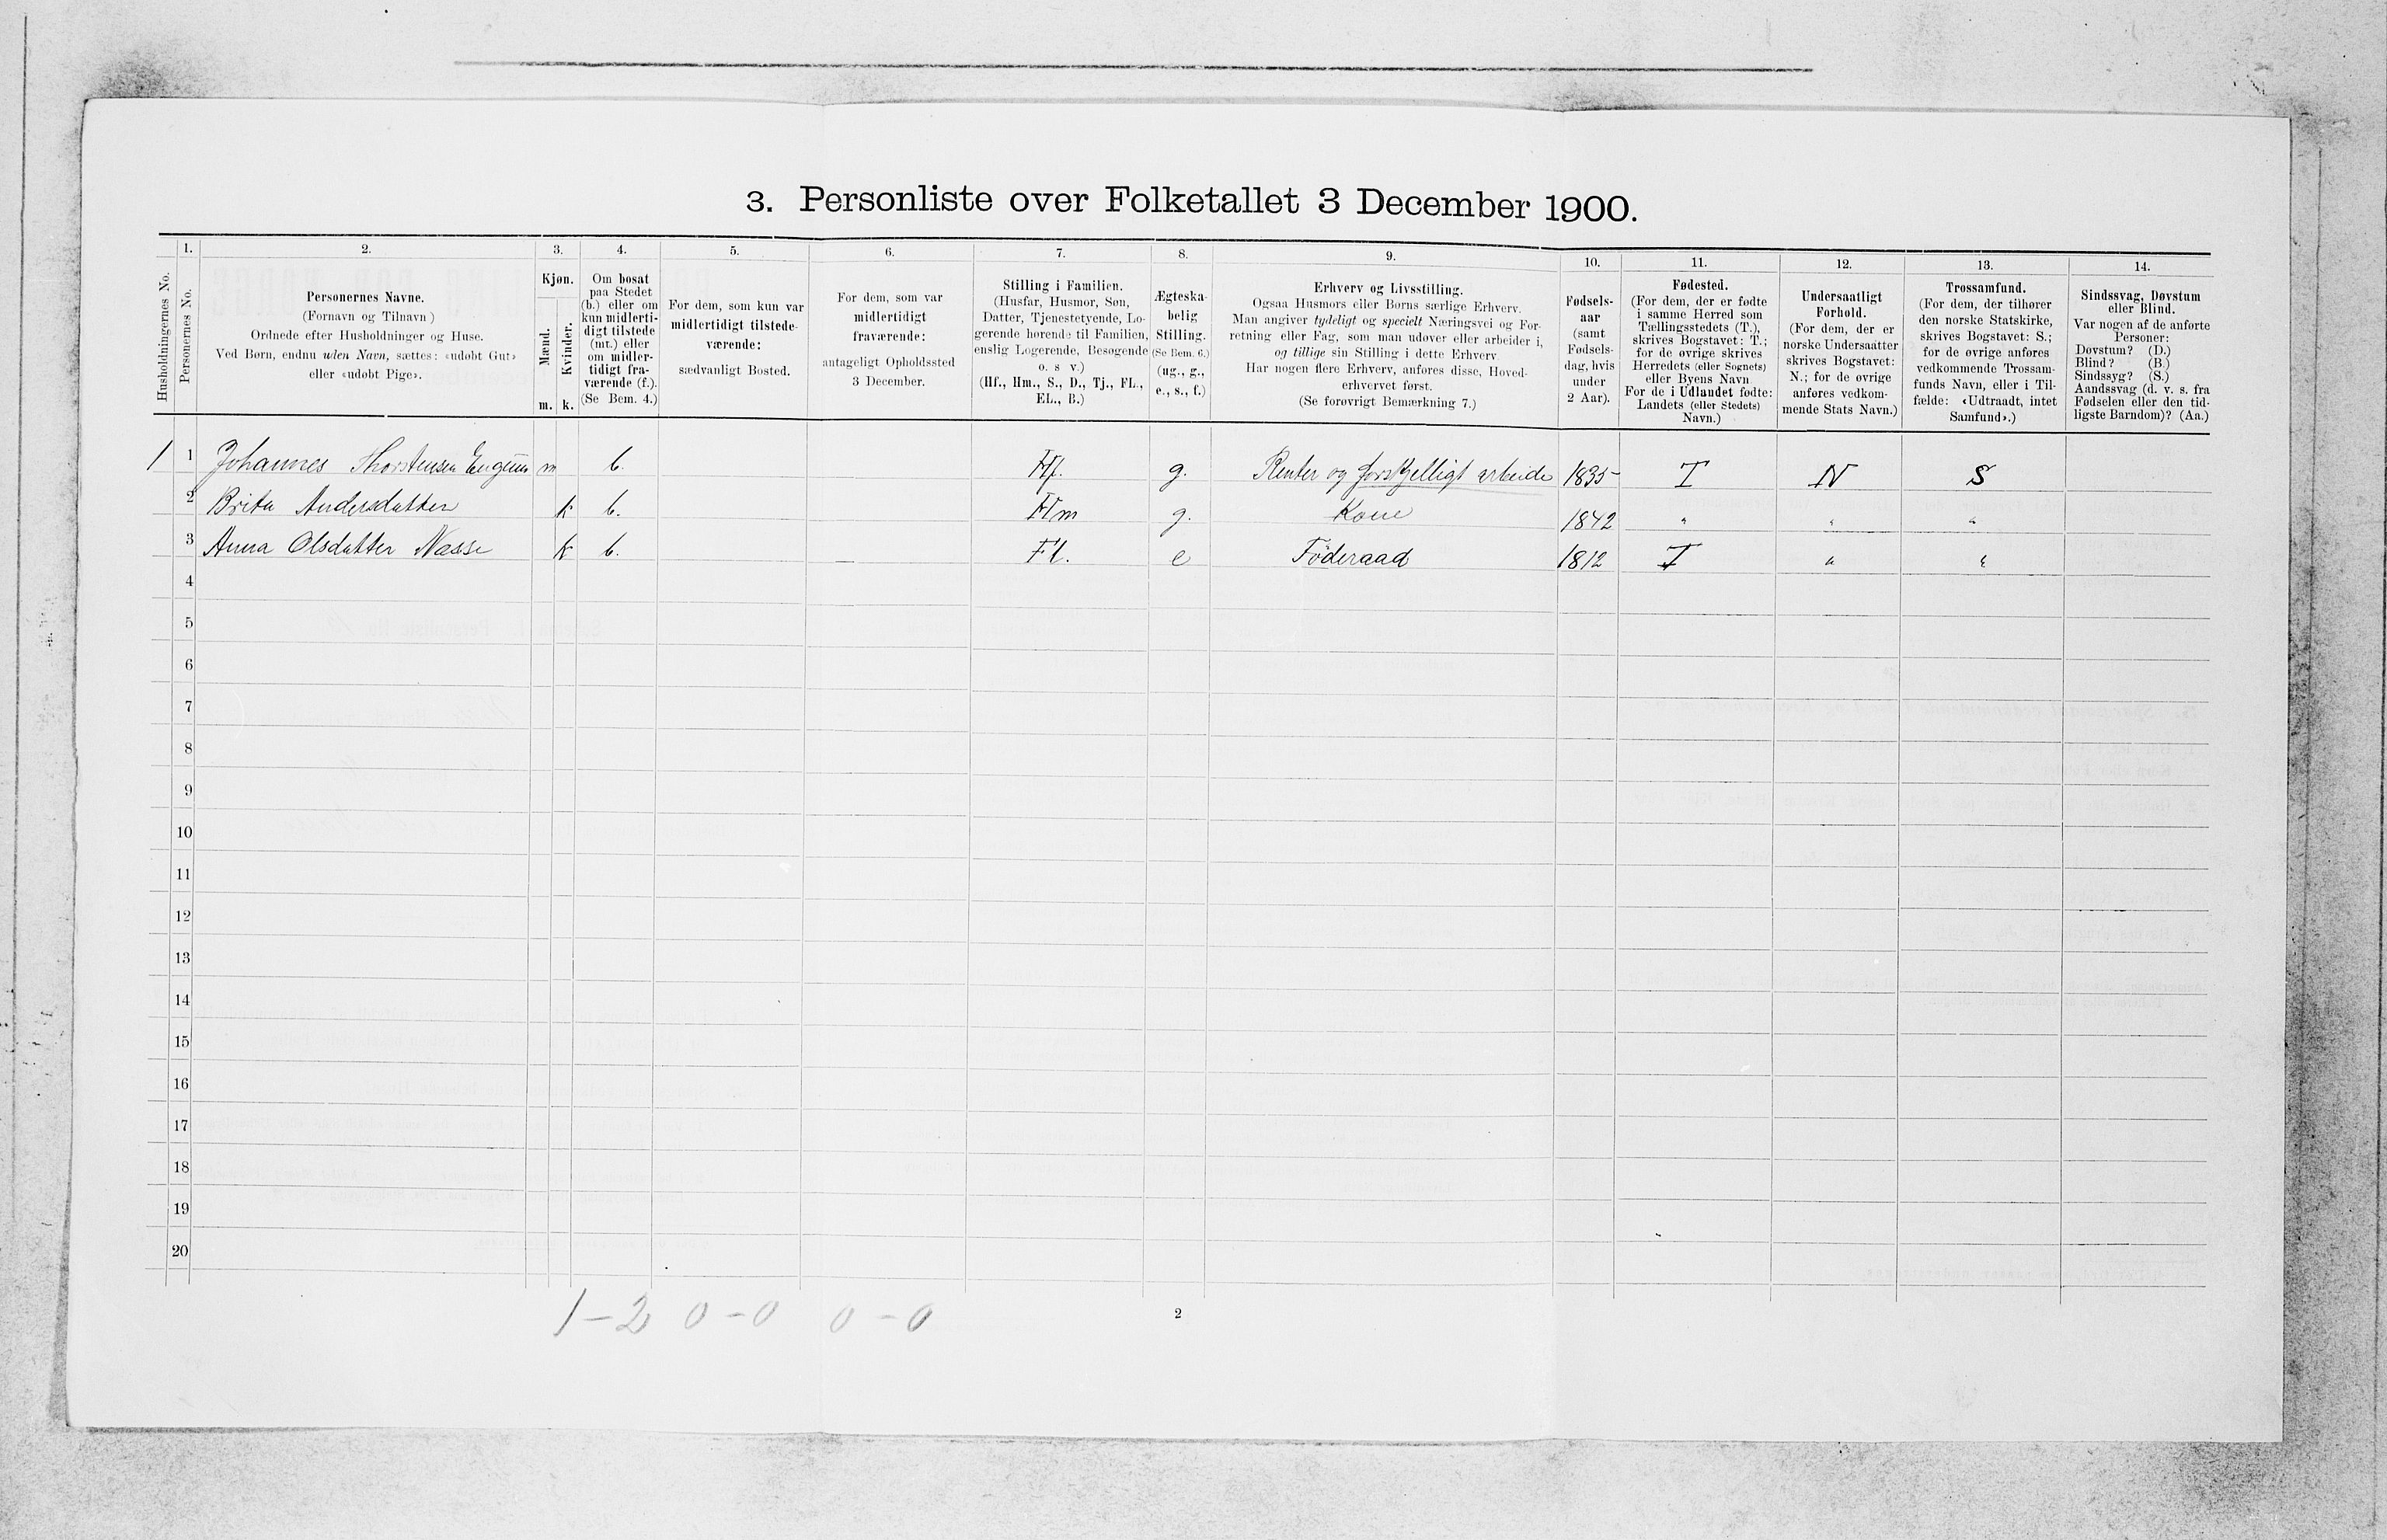 3. Personliste over Folketallet 3 December 1900.
1. 2. 3. 4. 5. 6. 7. 8. 9. 10. 11. 12. 13. 14.
Husholdningernes No.
Personernes No.
Personernes Navne.
(Fornavn og Tilnavn)
Ordnede efter Husholdninger og Huse.
Ved Børn, endnu uden Navn, sættes: «udøbt Gut»
eller «udøbt Pige».
Kjøn.
Mænd.
Kvinder.
m. k.
Om bosat
paa Stedet
(b.) eller om
kun midlerti-
digt tilstede
(mt.) eller
om midler-
tidigt fra-
værende (f.).
(Se Bem. 4.)
For dem, som kun var
midlertidigt tilstede-
værende:
sædvanligt Bosted.
For dem, som var
midlertidigt
fraværende:
antageligt Opholdssted
3 December.
Stilling i Familien.
(Husfar, Husmor, Søn,
Datter, Tjenestetyende, Lo-
gerende hørende til Familien,
enslig Logerende, Besøgende
o. s v.)
(Hf., Hm., S., D., Tj., FL.,
EL., B.)
Ægteska-
belig
Stilling.
(Se Bem. 6.)
(ug., g.,
e., s., f.)
Erhverv og Livsstilling.
Ogsaa Husmors eller Børns særlige Erhverv.
Man angiver tydeligt og specielt Næringsvei og For-
retning eller Fag, som man udøver eller arbeider i,
og tillige sin Stilling i dette Erhverv.
Har nogen flere Erhverv, anføres disse, Hoved-
erhvervet først.
(Se forøvrigt Bemærkning 7.)
Fødsels-
aar
(samt
Fødsels-
dag, hvis
under
2 Aar).
Fødested.
(For dem, der er fødte
i samme Herred som
Tællingsstedets (T.),
skrives Bogstavet: T.;
for de øvrige skrives
Herredets (eller Sognets)
eller Byens Navn
For de i Udlandet fødte:
Landets (eller Stedets)
Navn.)
Undersaatligt
Forhold.
(For dem, der er
norske Undersaatter
skrives Bogstavet:
N.; for de øvrige
anføres vedkom-
mende Stats Navn.)
Trossamfund.
(For dem, der tilhører
den norske Statskirke,
skrives Bogstavet: S.;
for de øvrige anføres
vedkommende Trossam-
funds Navn, eller i Til-
fælde: «Udtraadt, intet
Samfund».)
Sindssvag, Døvstum
eller Blind.
Var nogen af de anførte
Personer:
Døvstum? (D.)
Blind? (B.)
Sindssyg? (S.)
Aandssvag (d. v. s. fra
Fødselen eller den tid-
ligste Barndom)? (Aa.)
1 1 Johannes Thorstensen Engum m b. Hf. g. Renter og forskjelligt arbeide 1835 T N S
2 Brita Andersdatter k b. Hm g. Kone 1842 " " "
3 Anna Olsdatter Nasse k b. Fl. e Föderaad 1812 T " "
4
5
6
7
8
9
10
11
12
13
14
15
16
17
18
19
20
1-2 0-0 0-0
2